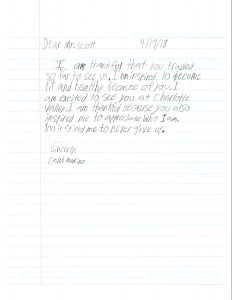 Dear Mr. Scott 9/17/18
I am thankful that you traveled
so far to see us. I am inspired to become
fit and healthy because of you. I
am excited to see you at Charlotte
Valley. I am thankful because you also
inspired me to appreciate who I am.
You inspired me to never give up.
Sincerely